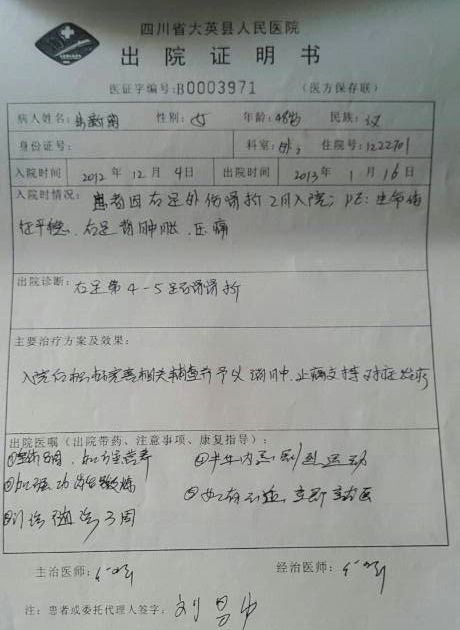 四川省大英县人民医院
出院证明书
医证字编号:B0003971 (医方保存联)
病人姓名: 性别:女 年龄:48岁 民族:汉
身份证号: 科室:外2 住院号:1222701
入院时间 2012年12月4日 出院时间 2013年1月16日
入院时情况: 患者因右足外伤骨折2月入院; PE:生命体
征平稳、右足背肿胀、压痛
出院诊断: 右足第4-5跖骨骨折
主要治疗方案及效果:
入院后积极完善相关辅查并予以消肿、止痛支持对症治疗
出院医嘱(出院带药、注意事项、康复指导):
加强营养 半年内忌剧烈运动
②加强功能锻炼 如有不适,立即就医
门诊随访3周
主治医师: 经治医师:
注:患者或委托代理人签字: